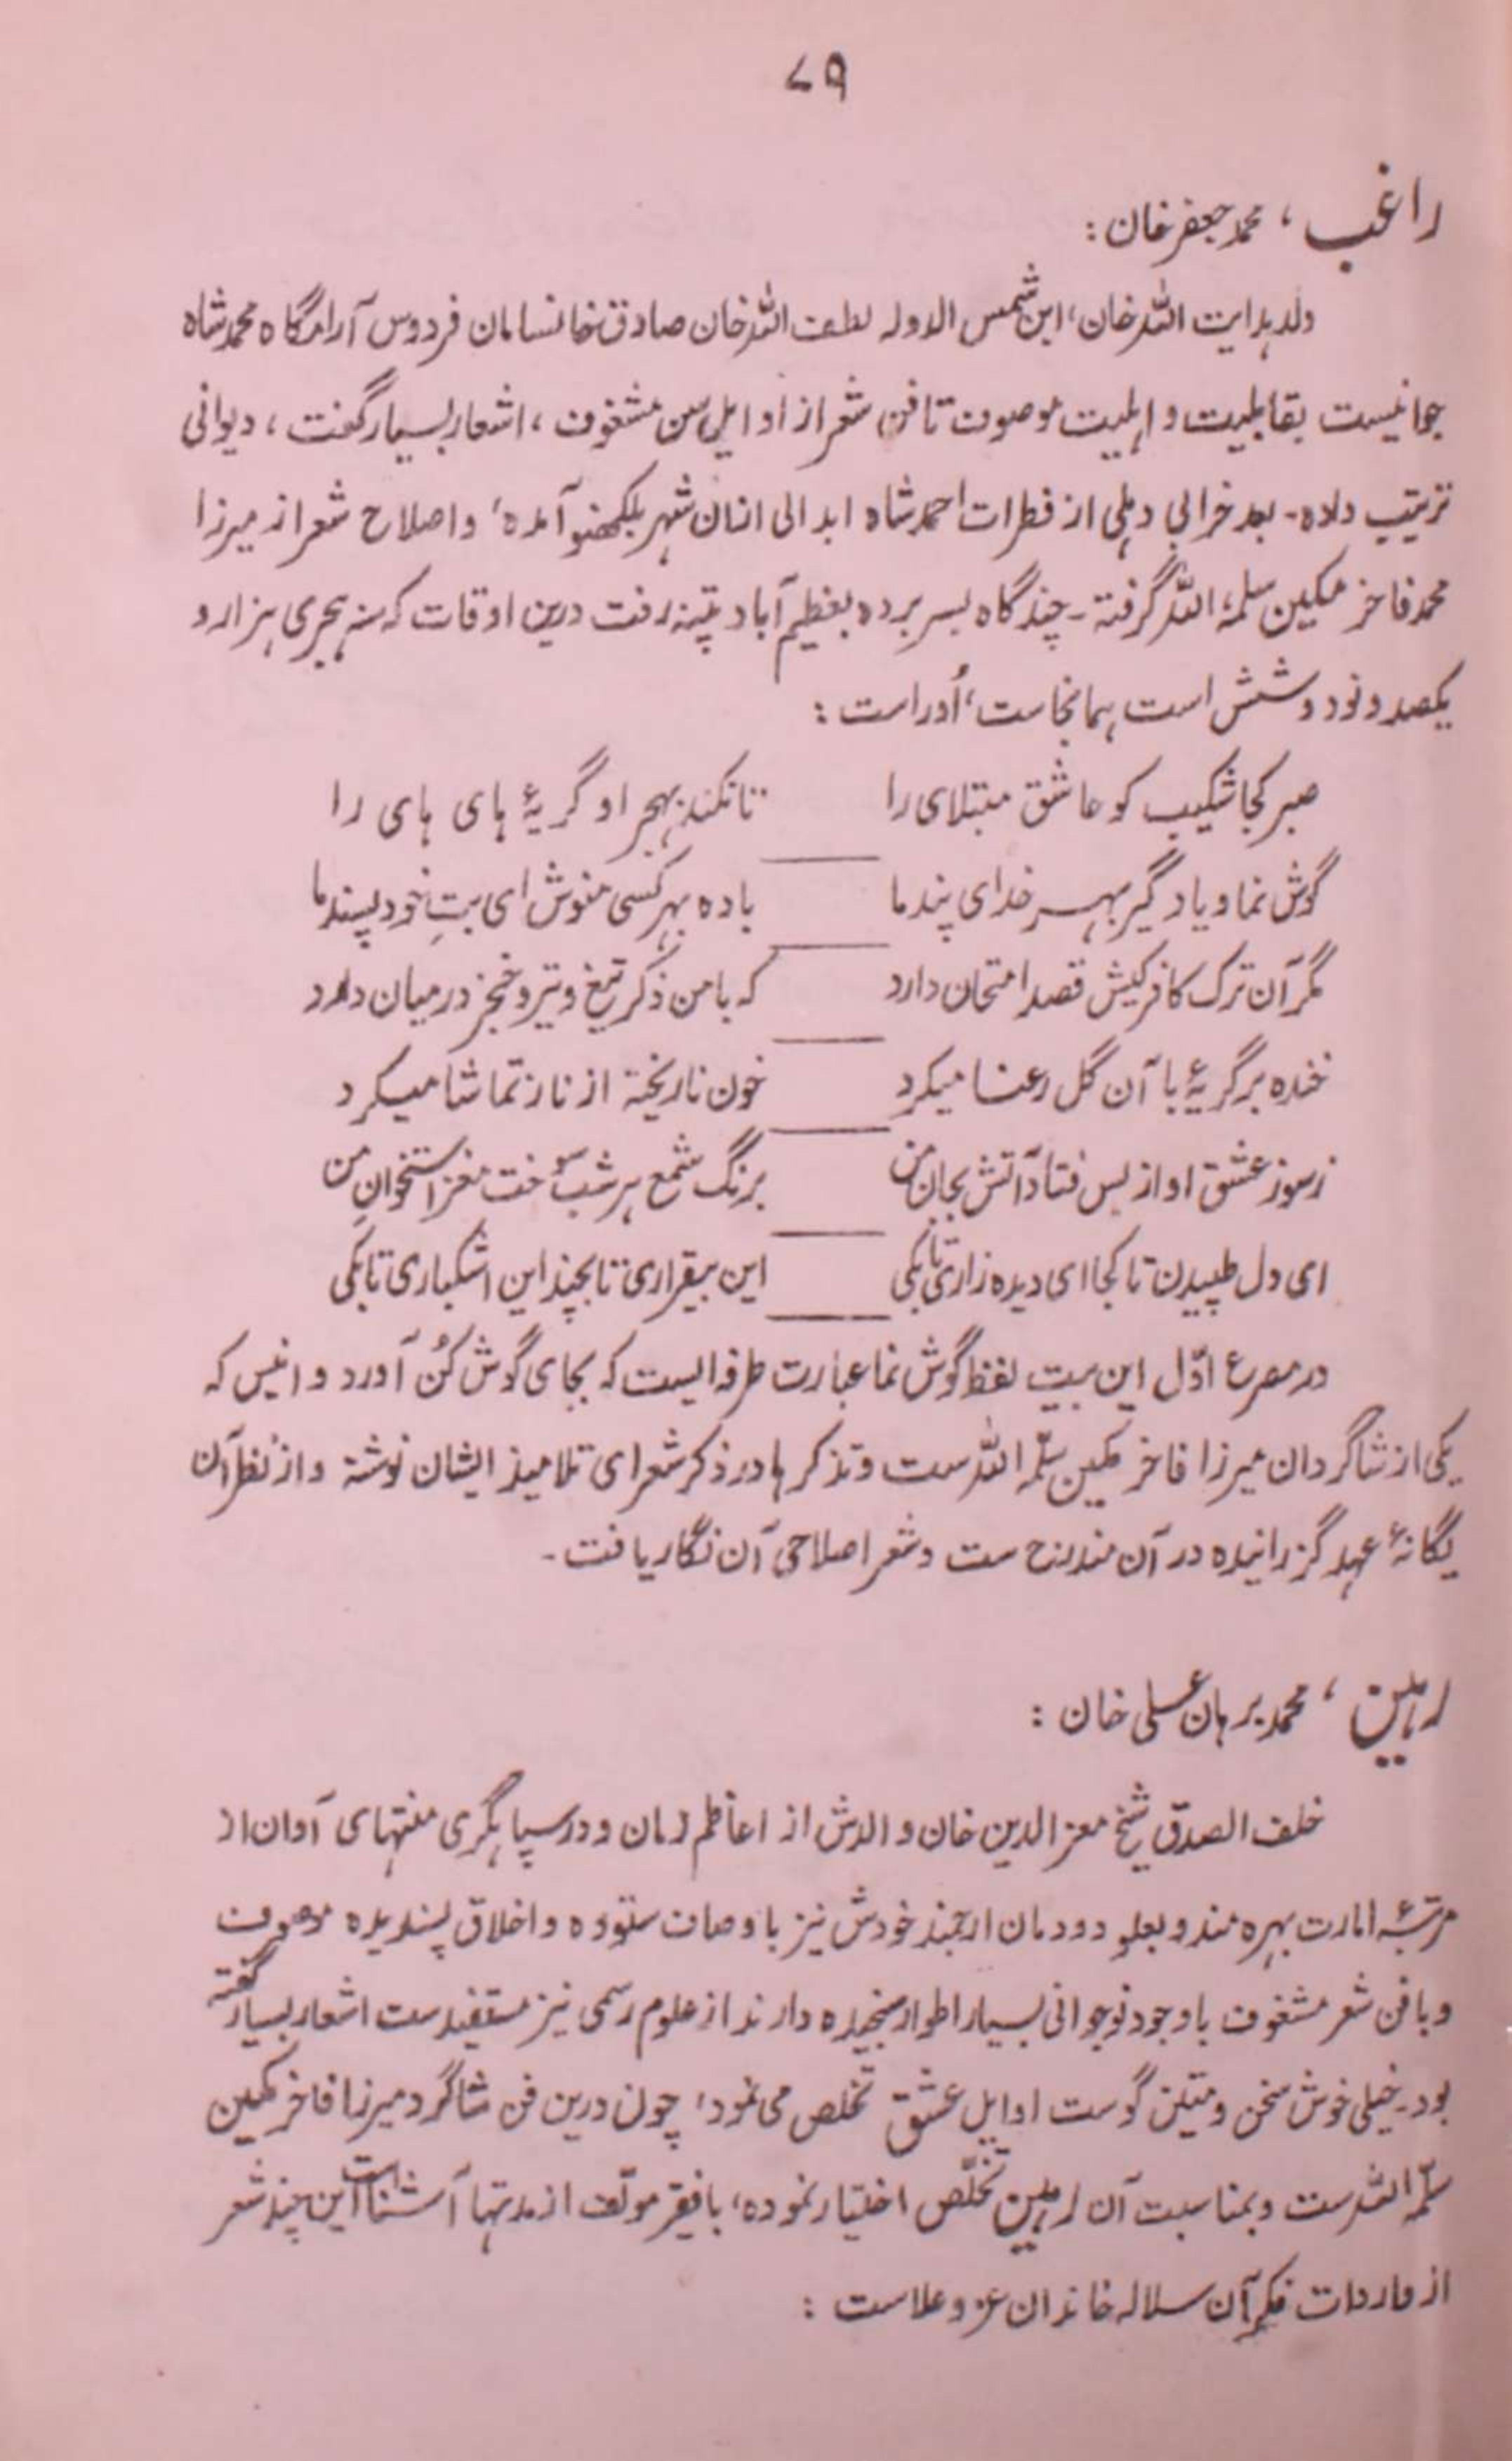 ۷۹
راغب ، محمد جعفر خان :
ولد ہدایت اللہ خان، ابن شمس الدولہ لطف اللہ خان صادق خانسامان فردوس آرامگاہ محمد شاہ
جوانیست بقابلیت و اہلیت موصوف تا فن شعر از اوایل سن مشغوف ، اشعار بسیار گفت ، دیوانی
ترتیب داده۔ بعد خرابی دہلی از فطرات احمد شاہ ابدالی ازان شہر بلکھنو آمده، واصلاح شعر از میرزا
محمد فاخر مکین سلمہ اللہ گرفتہ۔ چند گاہ بسر بردہ بعظیم آباد پتنہ رفت درین اوقات کہ سنہ ہجری ہزار و
یکصد و نود و شش است ہمانجاست، اُوراست :
صبر کجا شکیب کو عاشق مبتلای را تا نکند بہجر او گریۂ ہای ہای را
گوش نما و یاد گیر بہر خدای پند ما باده بہر کسی منوش ای بتِ خود پسند ما
مگر آن ترک کافر کیش قصد امتحان دارد کہ با من ذکر تیغ و تیر و خنجر در میان دارد
خنده بر گریۂ با آن گل رعنا میکرد خون نا ریختہ از ناز تماشا میکرد
ز سوز عشق او از بس فتاد آتش بجان من برنگ شمع ہر شب سوخت مغز استخوانِ من
ای دل طپیدن تا کجا ای دیده زاری تا بکی این بیقراری تا بچند این اشکباری تا بکی
در مصرع اوّل این بیت لفظ گوش نما عبارت طرفہ ایست کہ بجای گوش کُن آورد و انیس کہ
یکی از شاگردان میرزا فاخر مکین سلّمہ اللہ ست و تذکرہا در ذکر شعرای تلامیذ ایشان نوشتہ و از نظر آن
یگانۂ عہد گزرانیده در آن مندرج ست و شعر اصلاحی آن نگار یافت ۔
راہین ، محمد برہان علی خان :
خلف الصدق شیخ معز الدین خان و الدش از اعاظم زمان و در سپاہگری منتہای آوان از
مرتبۂ امارت بہره مند و بعلو دودمان ارجمند خودش نیز با وصاف ستوده و اخلاق پسندیده موصوف
و با فن شعر مشغوف با وجود نوجوانی بسیار اطوار سنجیده دارند از علوم رسمی نیز مستفید ست اشعار بسیار گفتہ
بود۔ خیلی خوش سخن و متین گوست اوایل عشق تخلص می نمود، چون درین فن شاگرد میرزا فاخر مکین
سلّمہ اللہ ست و بمناسبت آن راہین تخلّص اختیار نموده، با فقیر مولّف از مدتہا آشناست این چند شعر
از واردات فکر آن سلالہ خاندان عز و علاست :